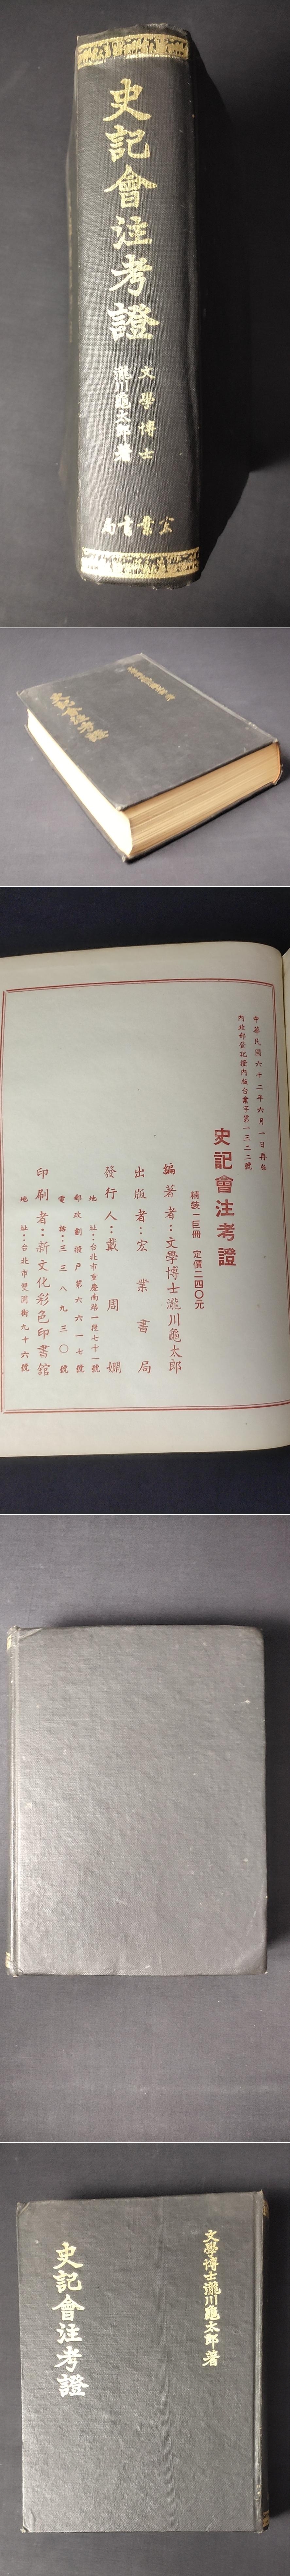 史記會注考證
文學博士
瀧川龜太郎著
宏業書局
史記會注考證
中華民國六十二年六月一日再版
內政部登記證內版台業字第一三二二號
史記會注考證
精裝一巨冊 定價二四〇元
編著者：文學博士瀧川龜太郎
出版者：宏業書局
發行人：戴周嫻
地址：台北市重慶南路一段七十一號
郵政劃撥戶第六六一七號
電話：三三八九三〇號
印刷者：新文化彩色印書館
地址：台北市雙園街九十六號
文學博士瀧川龜太郎著
史記會注考證